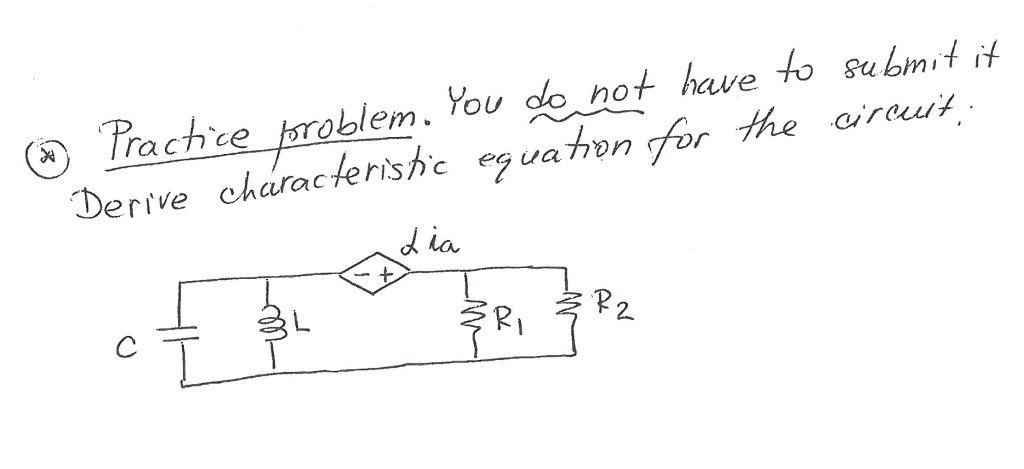 (*) Practice problem. You do not have to submit it
Derive characteristic equation for the circuit.
α ia
- +
C
L
R1
R2